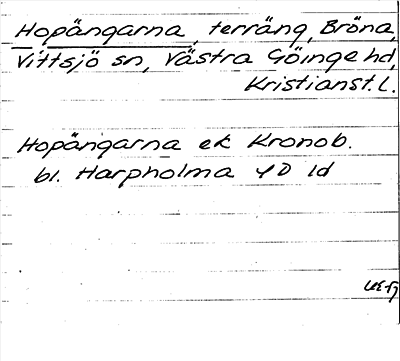 Hopängarna, terräng, Bröna,
Vittsjö sn, Västra Göinge hd,
Kristianst. l.
Hopängarna ek Kronob.
bl. Harpholma 4D 1d